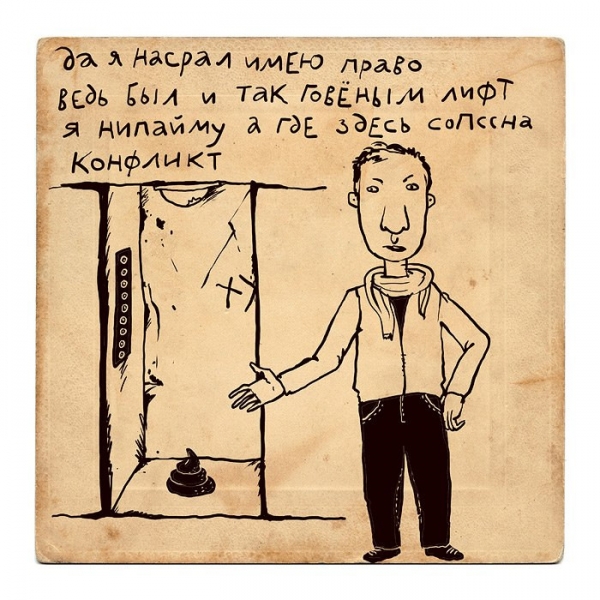 да я насрал имею право
ведь был и так говёным лифт
я нипайму а где здесь сопссна
конфликт
ху